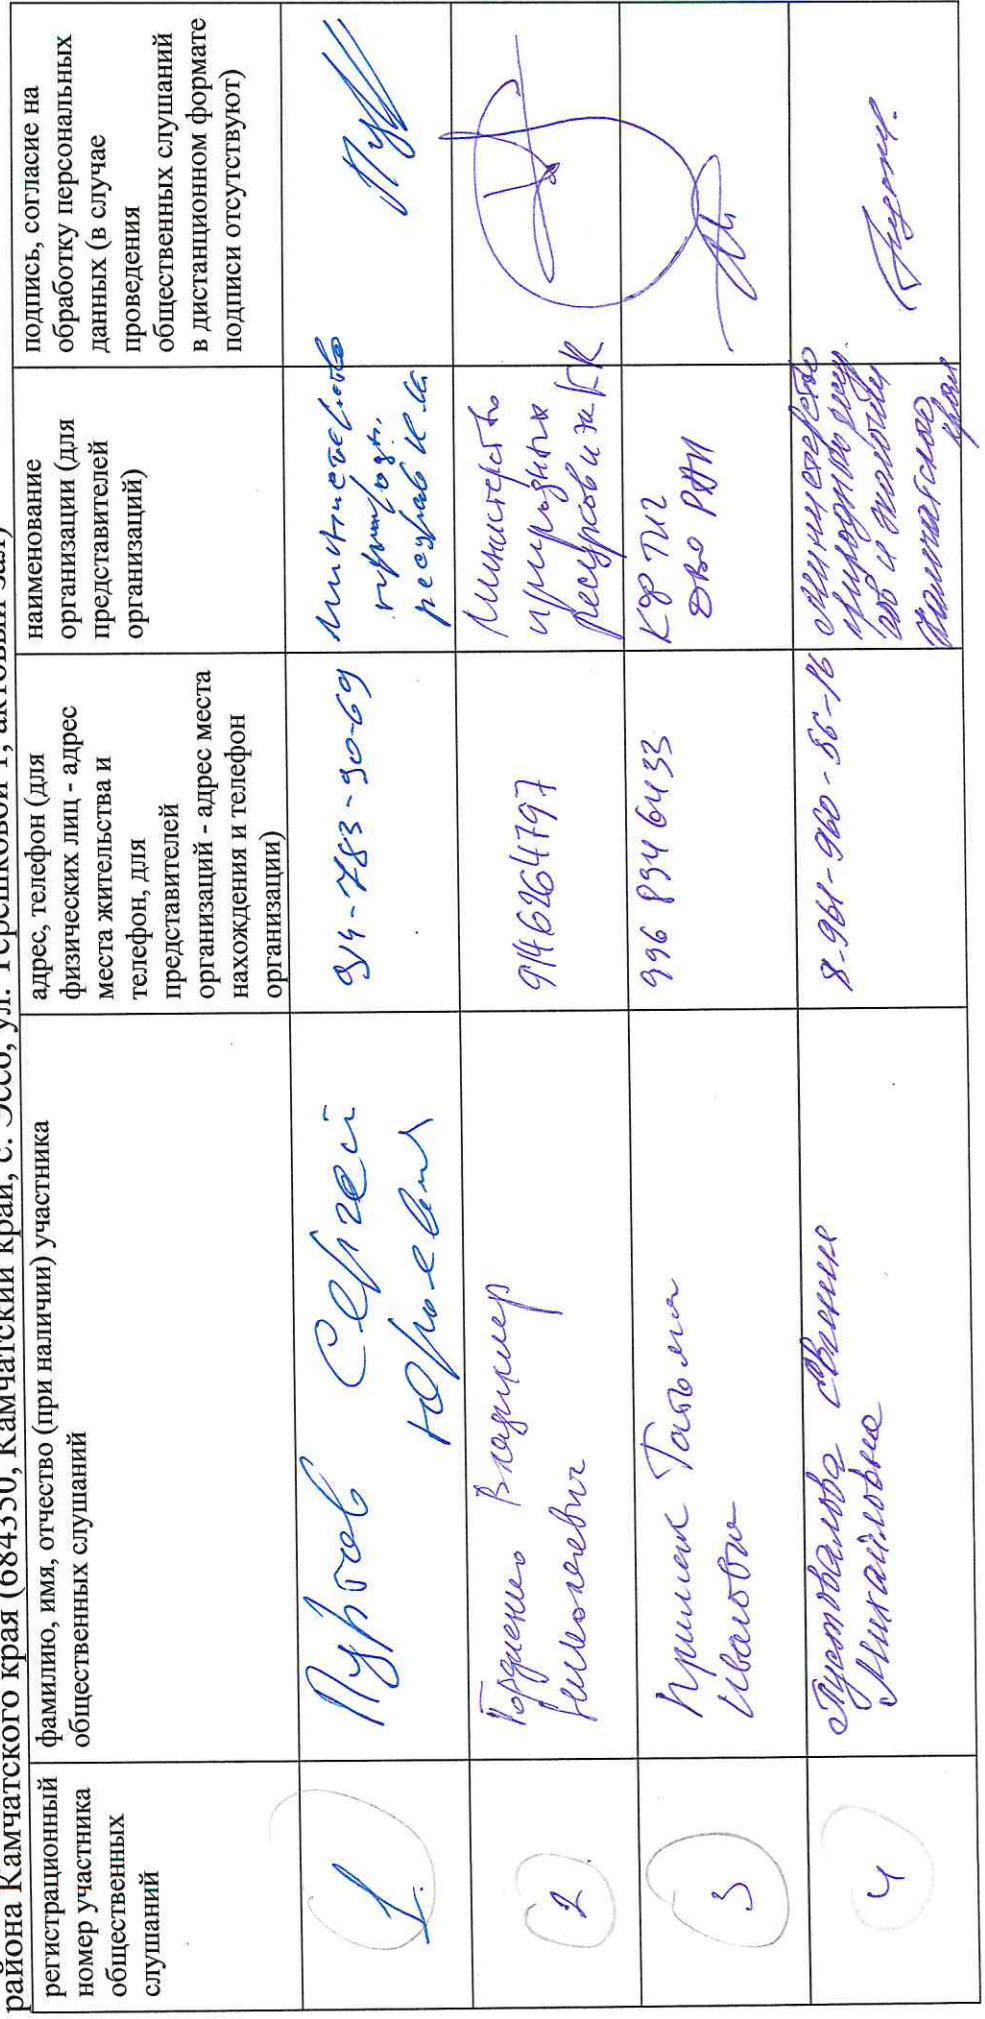 района Камчатского края (684350, Камчатский край, с. Эссо, ул. Терешковой 1, актовый зал)
регистрационный
номер участника
общественных
слушаний
фамилию, имя, отчество (при наличии) участника
общественных слушаний
адрес, телефон (для
физических лиц - адрес
места жительства и
телефон, для
представителей
организаций - адрес места
нахождения и телефон
организации)
наименование
организации (для
представителей
организаций)
подпись, согласие на
обработку персональных
данных (в случае
проведения
общественных слушаний
в дистанционном формате
подписи отсутствуют)
1.
Пуртов Сергей
Юрьевич
914-783-90-69
министерство
природн.
ресурсов
2
Гордиенко Владимир
Николаевич
9146264797
Министерство
природных
ресурсов и эк КК
3
Татьяна
Ивановна
996 8346433
КФ ТИГ
ДВО РАН
4
Пустовалова
Михайловна
8-961-960-86-16
министерство
природных ресур.
ов и экологии
Камчатского
края